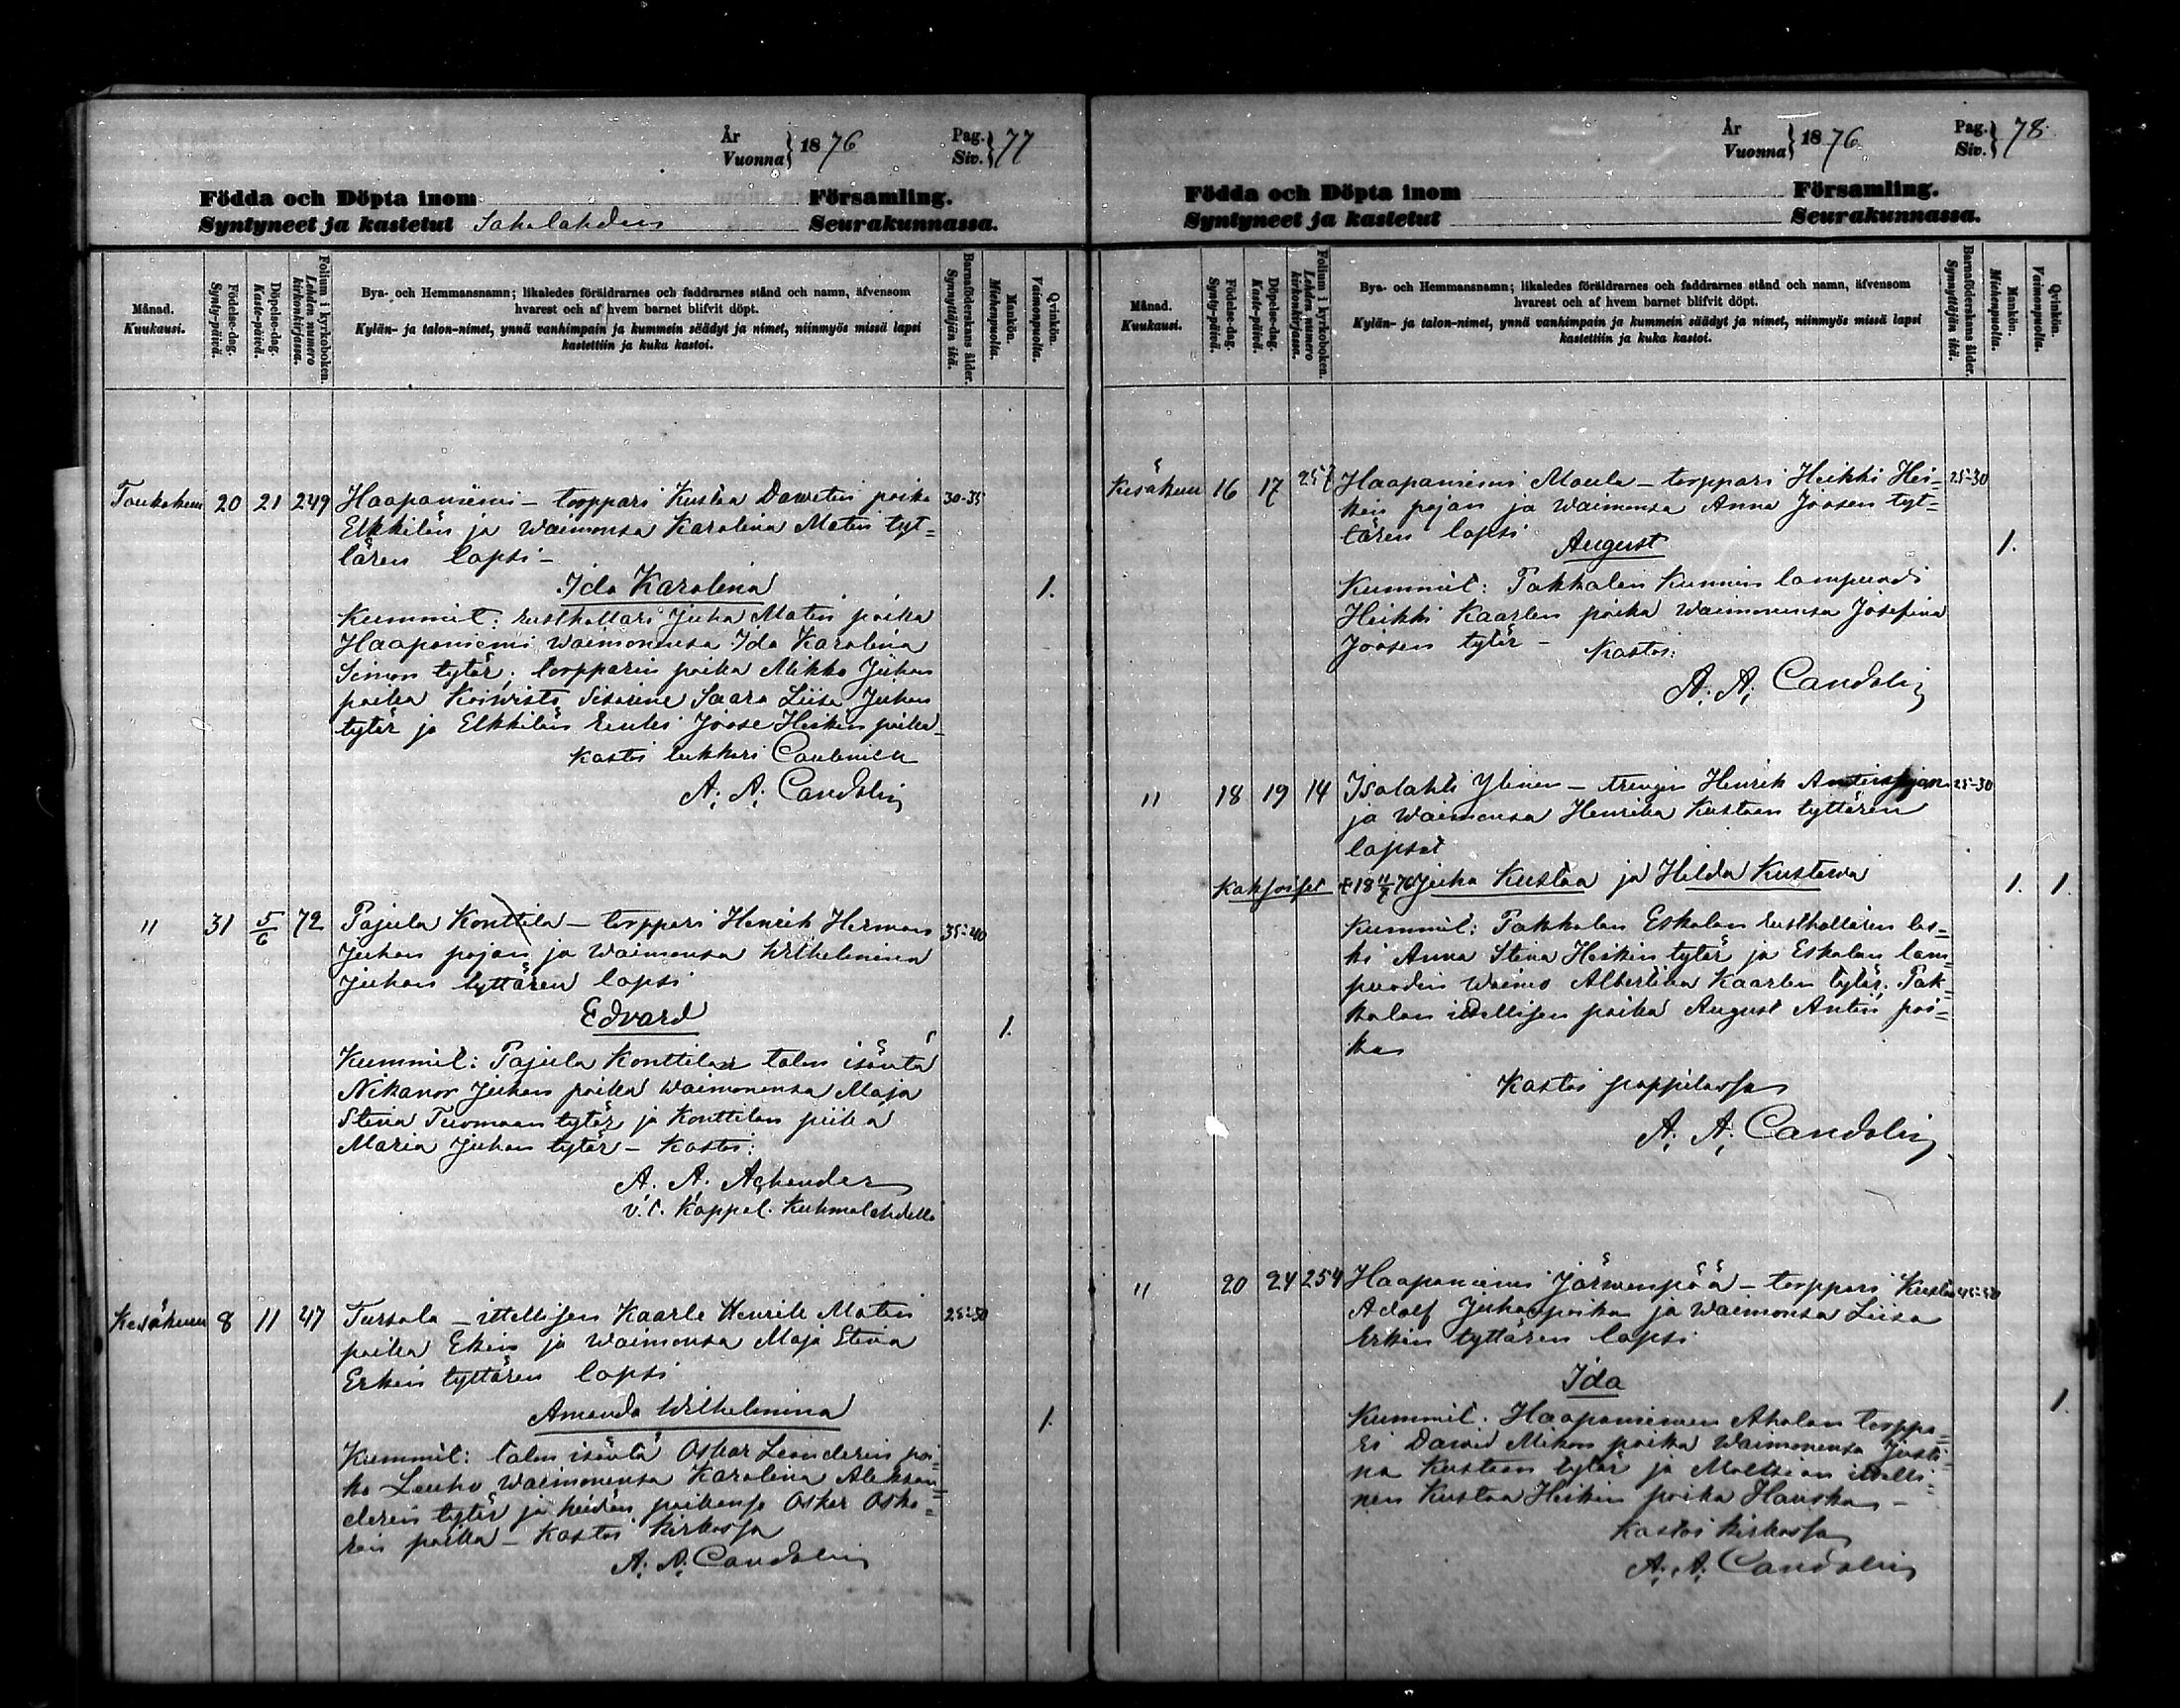 År
Vuonna } 1876
Pag.
Siv. } 77
Födda och Döpta inom Församling.
Syntyneet ja kastetut Sahalahden Seurakunnassa.
Månad.
Kuukausi.
Födelse-dag.
Synty-päivä.
Döpelse-dag.
Kaste-päivä.
Folium i kyrkoboken.
Lehden numero
kirkonkirjassa.
Bya- och Hemmansnamn; likaledes föräldrarnes och faddrarnes stånd och namn, äfvensom
hvarest och af hvem barnet blifvit döpt.
Kylän- ja talon-nimet, ynnä vanhimpain ja kummein säädyt ja nimet, niinmyös missä lapsi
kastettiin ja kuka kastoi.
Barnaföderskans ålder.
Synnyttäjän ikä.
Mankön.
Miehenpuolia.
Qvinkön.
Vaimonpuolia.
Toukokuu 20 21 249 Haapaniemi – torppari Kustaa Dawetin poika 30-35
Elkkilän ja Waimonsa Karolina Matin tyt=
tären lapsi –
Ida Karolina 1.
Kummit: rusthollari Juha Matin poika
Haapaniemi Waimonensa Ida Karolina
Simon tytär; torpparin poika Mikko Juhan
poika Koiwisto Sisarine Saara Liisa Juhan
tytär ja Elkkilän renki Joose Heikin poika –
Kastoi lukkari Caulenich
A. A. Candolin
" 31 5/6 72 Pajula Konttila – torppari Henrik Herman 35-40
Juhan pojan ja Waimonsa Wilhelmina
Juhan tyttären lapsi
Edvard 1.
Kummit: Pajula Konttilan talon isäntä
Nikanor Juhan poika Waimonensa Maja
Stina Tuomaan tytär ja Konttilan piika
Maria Juhan tytär – Kastoi:
A. A.
v. t. Kappal. Kuhmalahdella
Kesäkuu 8 11 47 Tursola – itsellisen Kaarle Henrik Matin 25-30
poika Ekin ja Waimonsa Maja Stina
Erkin tyttären lapsi
Amanda Wilhelmina 1.
Kummit: talon isäntä Oskar Leanderin poi=
ka Leuhu Waimonensa Karolina Aleksan=
derin tytär ja heidän poikansa Oskar Oska=
rin poika – Kastoi Kirkossa
A. A. Candolin
År
Vuonna } 1876
Pag.
Siv. } 78
Födda och Döpta inom Församling.
Syntyneet ja kastetut Seurakunnassa.
Månad.
Kuukausi.
Födelse-dag.
Synty-päivä.
Döpelse-dag.
Kaste-päivä.
Folium i kyrkoboken.
Lehden numero
kirkonkirjassa.
Bya- och Hemmansnamn; likaledes föräldrarnes och faddrarnes stånd och namn, äfvensom
hvarest och af hvem barnet blifvit döpt.
Kylän- ja talon-nimet, ynnä vanhimpain ja kummein säädyt ja nimet, niinmyös missä lapsi
kastettiin ja kuka kastoi.
Barnaföderskans ålder.
Synnyttäjän ikä.
Mankön.
Miehenpuolia.
Qvinkön.
Vaimonpuolia.
Kesäkuu 16 17 257 Haapaniemi Maula – torppari Heikki Hei= 25-30
kin pojan ja Waimonsa Anna Joosen tyt=
tären lapsi
August 1.
Kummit: Pakkalan Kunnin lampuodi
Heikki Kaarlen poika Waimonensa Josefina
Joosen tytär – Kastoi:
A. A. Candolin
" 18 19 14 Isolahti Ylinen – trengin Henrik Antinpojan 25-30
ja Waimonsa Henrika Kustaan tyttären
lapset
Kaksoiset † 18 11/7 76 Juha Kustaa ja Hilda Kustaava 1. 1.
Kummit: Pakkalan Eskolan rusthollarin les=
ki Anna Stina Heikin tytär ja Eskolan lam=
puodin Waimo Albertina Kaarlen tytär. Pak=
kalan itsellisen poika August Antin poi=
ka
Kastoi pappilassa
A. A. Candolin
" 20 24 254 Haapaniemi Järwenpää – torppari Kustaa 45-50
Adolf Juhan poika ja Waimonsa Liisa
Erkin tyttären lapsi
Ida 1.
Kummit: Haapaniemen Aholan torppa=
ri Dawid Mikon poika Waimonensa Justi=
na Kustaan tytär ja Moltsian itselli=
nen Kustaa Heikin poika Hauska –
Kastoi Kirkossa
A. A. Candolin